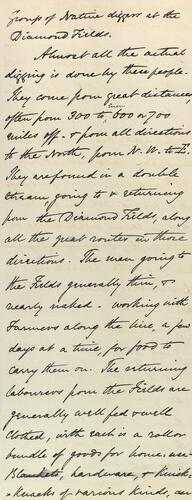 Groups of Native diggers at the
Diamond Fields.
Almost all the actual
digging is done by these people.
They come from great distances
even
often from 500 to, 600 or 700
miles off - & from all directions
to the North, from N.W. to E.
They are found in a double
stream, going to & returning
from the Diamond Fields, along
all the great routes in those
directions. The men going to
the Fields generally thin, &
nearly naked - working with
Farmers along the line, a few
days at a time for food to
carry them on. The returning
labourers from the Fields are
generally well fed & well
Clothed, with each is a roll or
bundle of goods for home use -
Blankets, hardware, &
& knacks of various kinds,